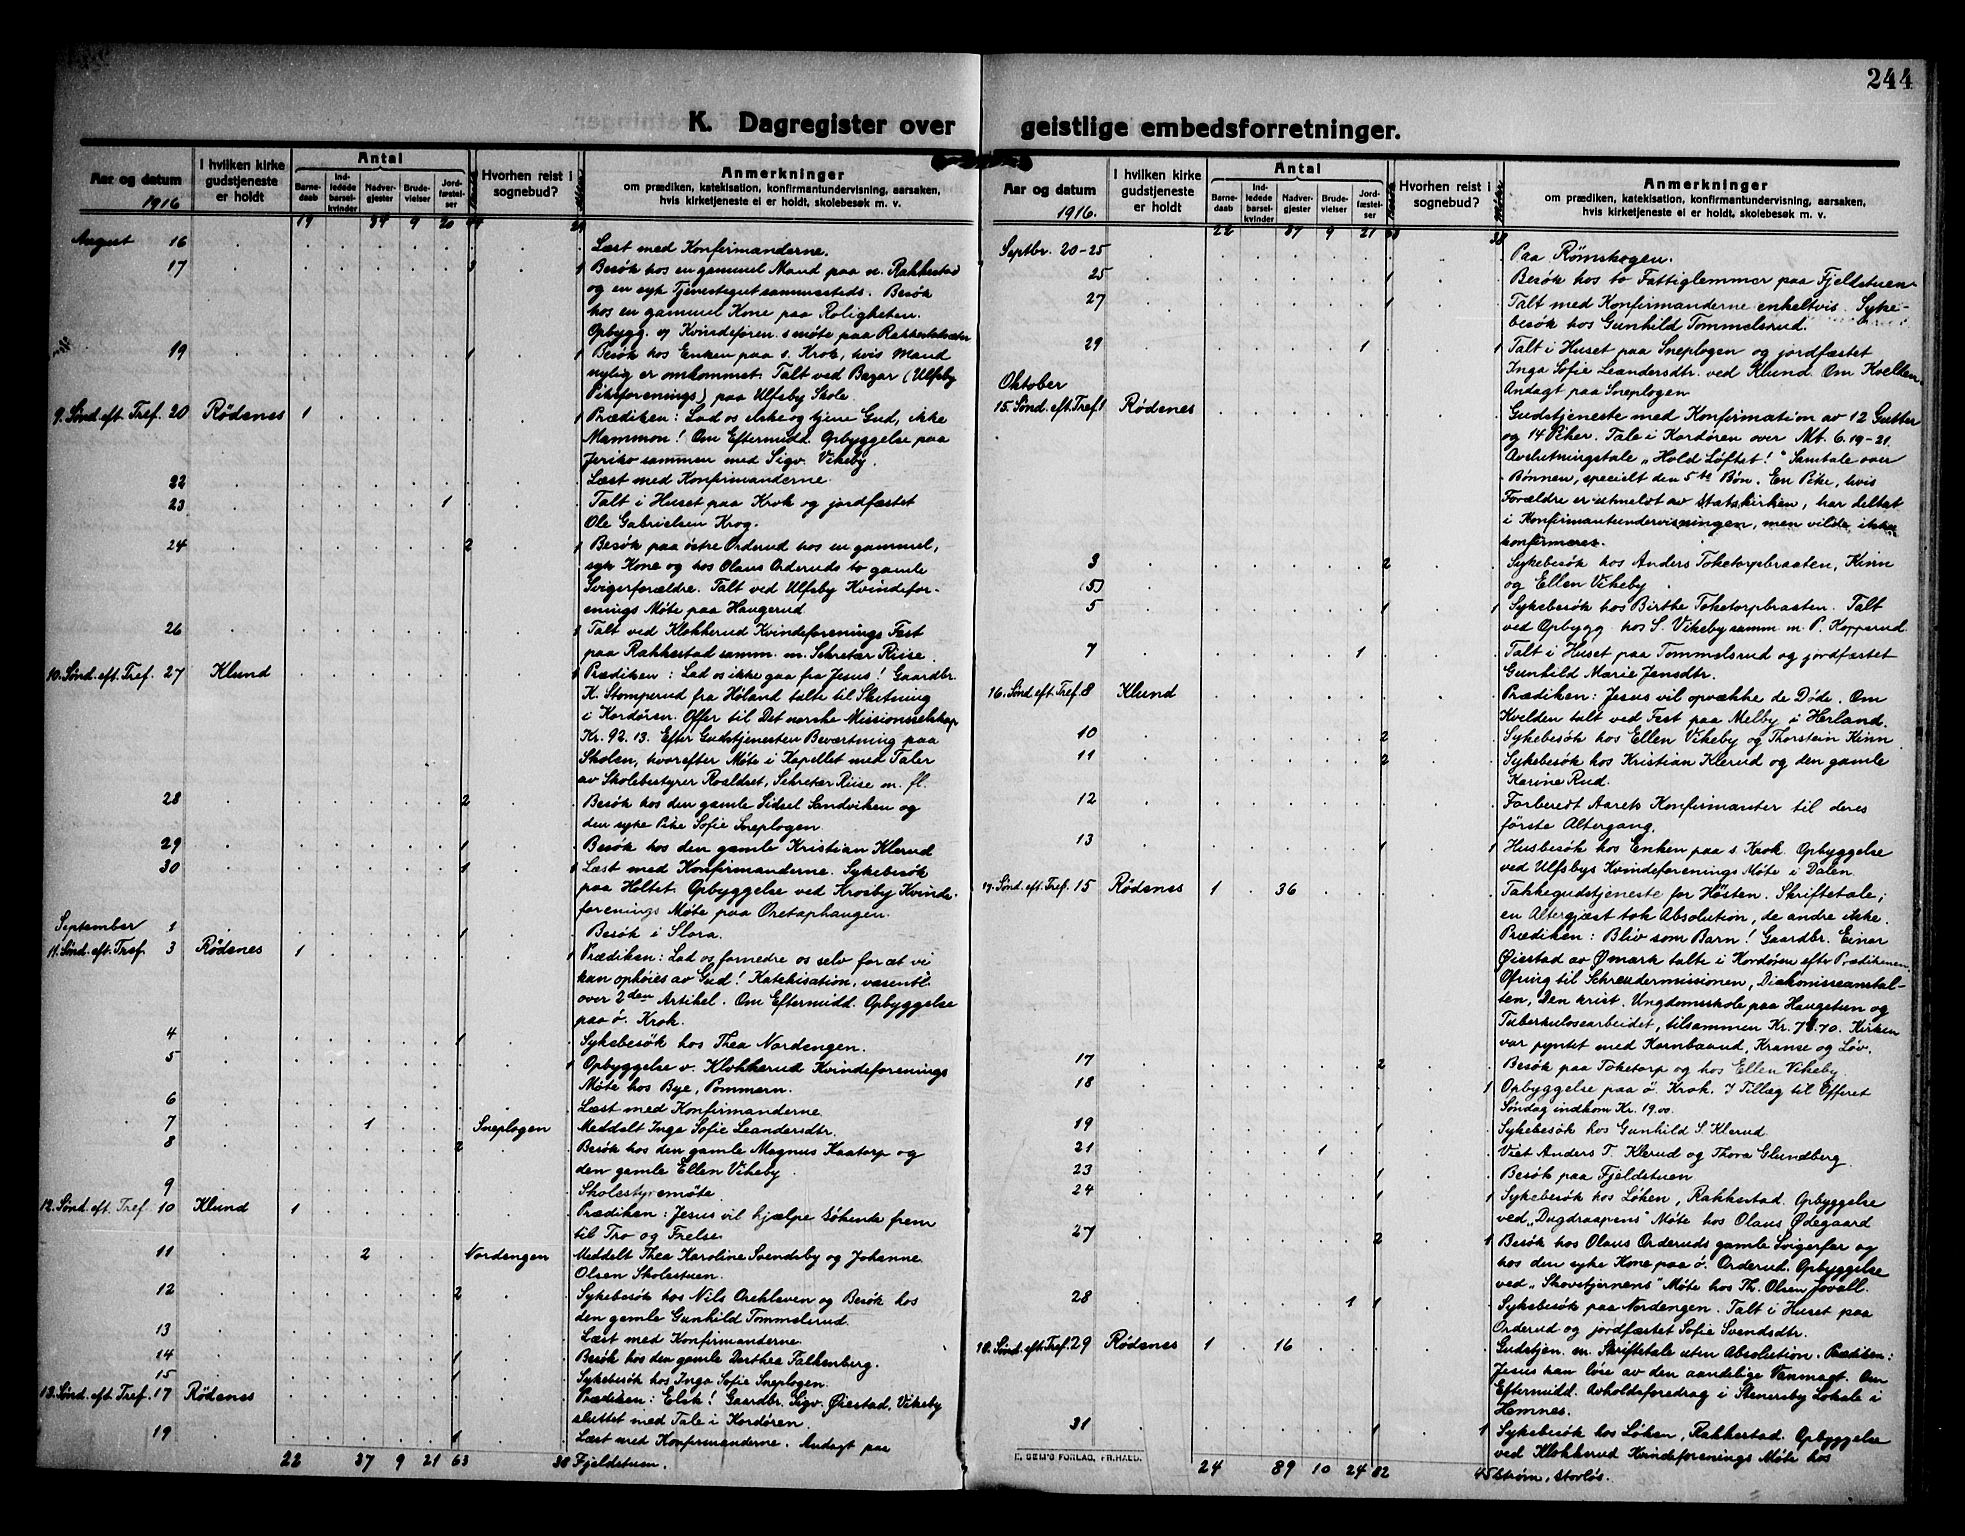 244
K. Dagregister over geistlige embedsforretninger.
Aar og datum
1916
I hvilken kirke gudstjeneste er holdt
Antal
Barnedaab
Indledede barselkvinder
Nadvergjester
Brudevielser
Jordfæstelser
Hvorhen reist i sognebud?
Anmerkninger
om prædiken, katekisation, konfirmantundervisning, aarsaken,
hvis kirketjeneste ei er holdt, skolebesøk m. v.
19 34 9 20
August 16 Læst med Konfirmanderne.
17 3 1 Besøk hos en gammel Mand paa n. Rakkestad
og en syk Tjenestegut sammesteds. Besøk
hos en gammel Kone paa Roligheten.
Opbygg. v Kvindeforen.s møte paa
19 1 1 Besøk hos Enken paa s. Krok, hvis Mand
nylig er omkommet. Talt ved Bazar (Ulfsby
Pikeforenings) paa Ulfsby Skole.
9. Sønd. eft. Tref. 20 Rødenes 1 1 Prædiken: Lad os elske og tjene Gud, ikke
Mammon! Om Eftermidd. Opbyggelse paa
Jeriko sammen med Sigv. Vikeby.
22 Læst med Konfirmanderne.
23 1 Talt i Huset paa Krok og jordfæstet
Ole Gabrielsen Krog.
24 2 1 Besøk paa østre Orderud hos en gammel,
syk Kone og hos Olaus Orderuds to gamle
Svigerforældre. Talt ved Ulfsby Kvindefor-
enings Møte paa Haugerud
26 1 Talt ved Klokkerud Kvindeforenings Fest
paa Rakkestad samm. m. Sekretær Riise.
10. Sønd. eft. Tref. 27 Klund 1 Prædiken: Lad os ikke gaa fra Jesus! Gaardbr.
K. Stomperud fra Høland talte til Slutning
i Kordøren. Offer til Det norske Missionsselskap
Kr. 92.13. Efter Gudstjenesten Bevertning paa
Skolen, hvorefter Møte i Kapellet med Taler
av Skolebestyrer Roaldset, Sekretær Riise m. fl.
28 2 Besøk hos den gamle Sidsel Sandviken og
den syke Pike Sofie Sneplogen
29 1 Besøk hos den gamle Kristian Klerud
30 1 1 Læst med Konfirmanderne. Sykebesøk
paa Holtet. Opbyggelse ved Krosby Kvinde-
forenings Møte paa Oretaphaugen.
September 1 1 Besøk i Slora.
11. Sønd. eft. Tref. 3 Rødenes 1 1 Prædiken: Lad os fornedre os selv for at vi
kan ophøies av Gud! Katekisation, væsentl.
over 2den Artikel. Om Eftermidd. Opbyggelse
paa ø. Krok.
4 1 Sykebesøk hos Thea Nordengen.
5 1 Opbyggelse v. Klokkerud Kvindeforenings
Møte hos Bye, Pommern.
6 Læst med Konfirmanderne
7 1 Sneplogen Meddelt Inga Sofie Leandersdtr.
8 2 Besøk hos den gamle Magnus Kaatorp og
den gamle Ellen Vikeby.
9 Skolestyremøte.
12. Sønd. eft. Tref. 10 Klund 1 Prædiken: Jesus vil hjælpe søkende frem
til Tro og Frelse.
11 2 Nordengen Meddelt Thea Karoline Svendsby og Johanne
Olsen Skolestuen.
12 2 Sykebesøk hos Nils Orekleven og Besøk hos
den gamle Gunhild Tommelsrud.
13 Læst med Konfirmanderne.
14 1 Besøk hos den gamle Dorthea Falkenberg.
15 1 Sykebesøk hos Inga Sofie Sneplogen.
13. Sønd. eft. Tref. 17 Rødenes Prædiken: Elsk! Gaardbr. Sigv. Øiestad, Vikeby
sluttet med Tale i Kordøren.
19 1 Læst med Konfirmanderne. Andagt paa
22 37 9 21 63 38 Fjeldstuen.
Aar og datum
1916.
I hvilken kirke gudstjeneste er holdt
Antal
Barnedaab
Indledede barselkvinder
Nadvergjester
Brudevielser
Jordfæstelser
Hvorhen reist i sognebud?
Anmerkninger
om prædiken, katekisation, konfirmantundervisning, aarsaken,
hvis kirketjeneste ei er holdt, skolebesøk m. v.
22 37 9 21 63 38
Septbr. 20-25 Paa Rømskogen.
25 1 Besøk hos to Fattiglemmer paa Fjeldstuen
27 1 Talt med Konfirmanderne enkeltvis. Syke-
besøk hos Gunhild Tommelsrud.
29 1 1 Talt i Huset paa Sneplogen og jordfæstet
Inga Sofie Leandersdtr. ved Klund. Om Kvelden
Andagt paa Sneplogen
Oktober
15. Sønd. eft. Tref. 1 Rødenes Gudstjeneste med Konfirmation av 12 Gutter
og 14 Piker. Tale i Kordøren over Mt. 6.19-21.
Avslutningstale „Hold Løftet!" Samtale over
Bønnen, specielt den 5te Bøn. En Pike, hvis
Forældre er utmeldt av Statskirken, har deltat
i Konfirmantundervisningen, men vilde ikke
konfirmeres.
3 2 Sykebesøk hos Anders Toketorpbraaten, Kinn
(5) og Ellen Vikeby
5 1 1 Sykebesøk hos Birthe Toketorpbraaten. Talt
ved Opbygg. hos S. Vikeby samm m. P. Kopperud.
7 1 Talt i Huset paa Tommelsrud og jordfæstet
Gunhild Marie Jensdtr.
16. Sønd. eft. Tref. 8 Klund Prædiken: Jesus vil opvække de Døde. Om
Kvelden talt ved Fest paa Melby i Herland.
10 2 Sykebesøk hos Ellen Vikeby og Thorstein Kinn
11 2 Sykebesøk hos Kristian Klerud og den gamle
Karine Rud.
12 Forberedt Aarets Konfirmanter til deres
første Altergang.
13 1 1 Husbesøk hos Enken paa s. Krok. Opbyggelse
ved Ulfsbys Kvindeforenings Møte i Dalen
17. Sønd. eft. Tref. 15 Rødenes 1 36 Takkegudstjeneste for Høsten. Skriftetale;
en Altergjæst tok Absolution, de andre ikke.
Prædiken: Bliv som Barn! Gaardbr. Einar
Øiestad av Ømark talte i Kordøren eftr Prædikenen.
Ofring til Schreudermissionen, Diakonisseanstal-
ten, Den krist. Ungdomsskole paa Haugetun og
Tuberkulosearbeidet, tilsammen Kr. 78.70. Kirken
var pyntet med Kornbaand, Kranse og Løv.
17 2 Besøk paa Toketorp og hos Ellen Vikeby
18 1 Opbyggelse paa ø. Krok. I Tillæg til Offeret
Søndag indkom Kr. 19.00
19 1 Sykebesøk hos Gunhild S. Klerud
21 1 Viet Anders T. Klerud og Thora Glundberg.
23 1 Besøk paa Fjeldstuen
24 1 1 Sykebesøk hos Løken, Rakkestad. Opbyggelse
ved „Dugdraapens" Møte hos Olaus Ødegaard
27 2 1 Besøk hos Olaus Orderuds gamle Svigerfar og
hos den syke Kone paa ø. Orderud. Opbyggelse
ved „Skovstjernens" Møte hos Th. Olsen Jovall.
28 1 1 Sykebesøk paa Nordengen. Talt i Huset paa
Orderud og jordfæstet Sofie Svendsdtr.
18. Sønd. eft. Tref. 29 Rødenes 1 16 Gudstjen. m. Skriftetale uten Absolution. Prædiken:
Jesus kan løse av den aandelige Vanmagt. Om
Eftermidd. Avholdsforedrag i Stenersby Lokale i
Hemnes.
31 1 1 Sykebesøk hos Løken, Rakkestad. Opbyggelse
ved Klokkerud Kvindeforenings Møte hos
24 89 10 24 82 45 Strøm, Storløs.
E. SEM'S FORLAG, FR.HALD.